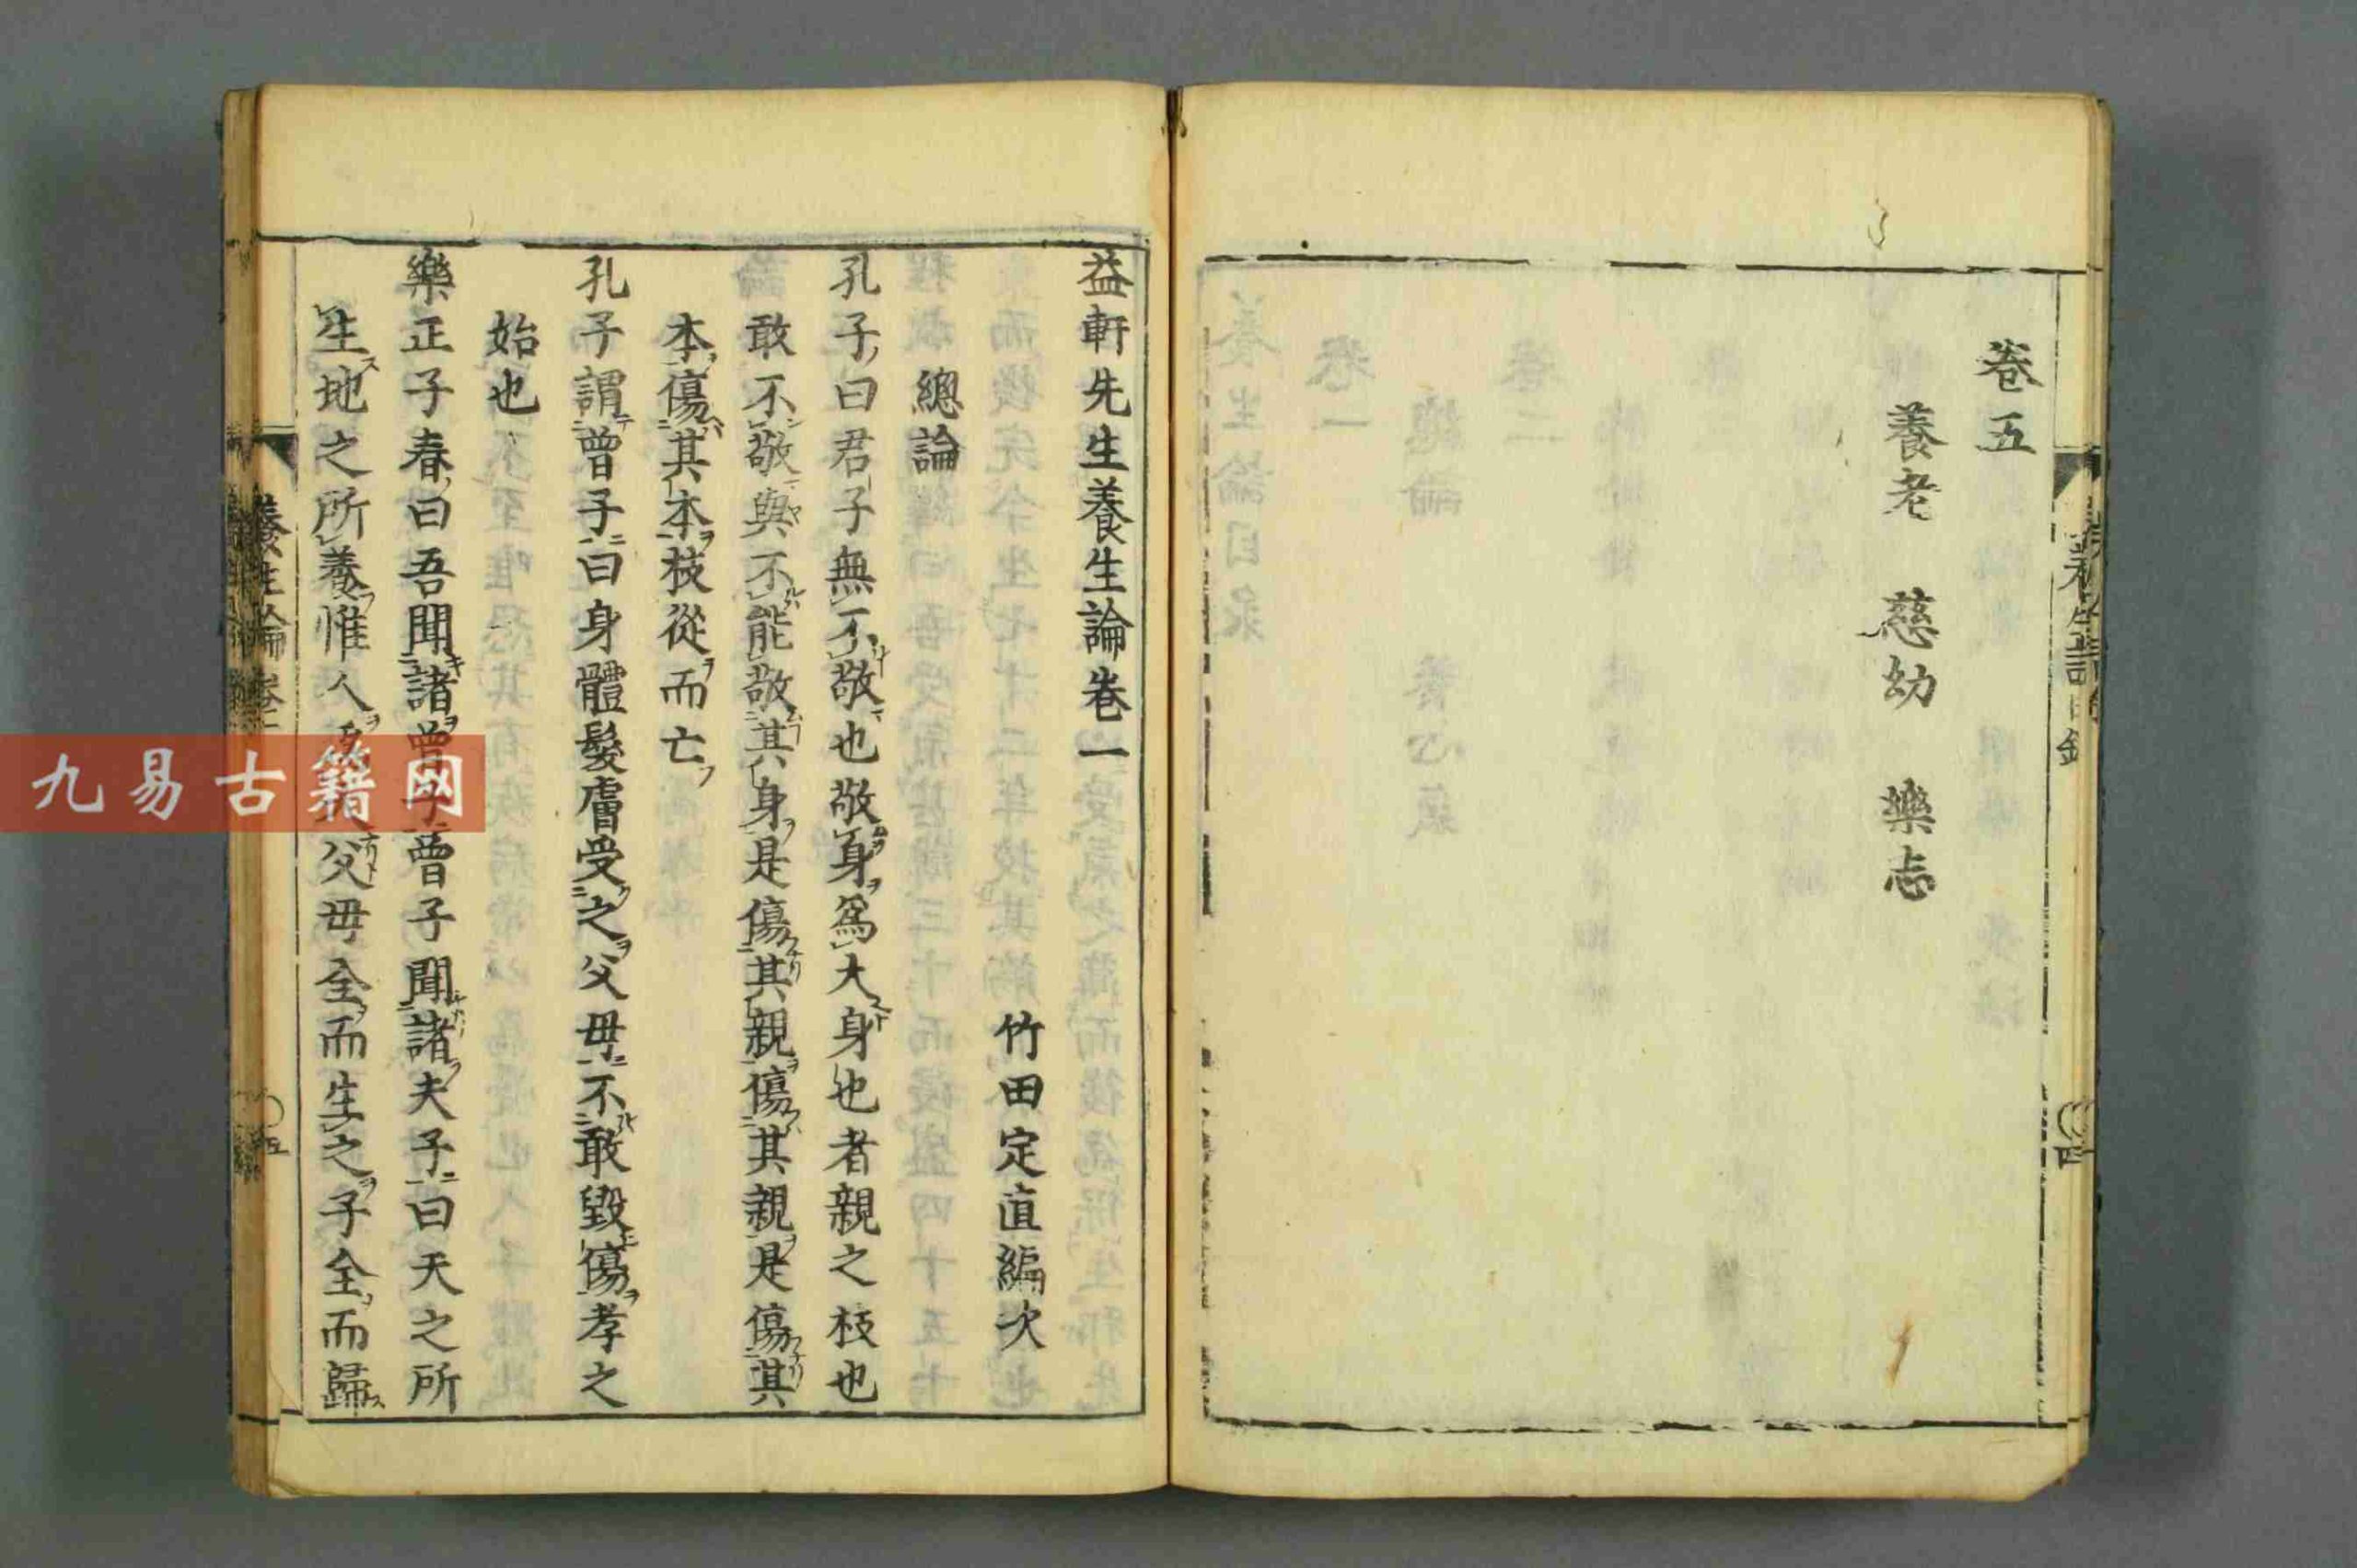 卷五
養老　慈幼　樂志
益軒先生養生論卷一
竹田定直編次
總論
孔子曰君子無不敬也敬身爲大身也者親之枝也
敢不敬與不能敬其身是傷其親傷其親是傷其
本傷其本枝從而亡
孔子謂曾子曰身體髮膚受之父母不敢毀傷孝之
始也
樂正子春曰吾聞諸曾子曾子聞諸夫子曰天之所
生地之所養惟人父母全而生之子全而歸
養生論
九易古籍网